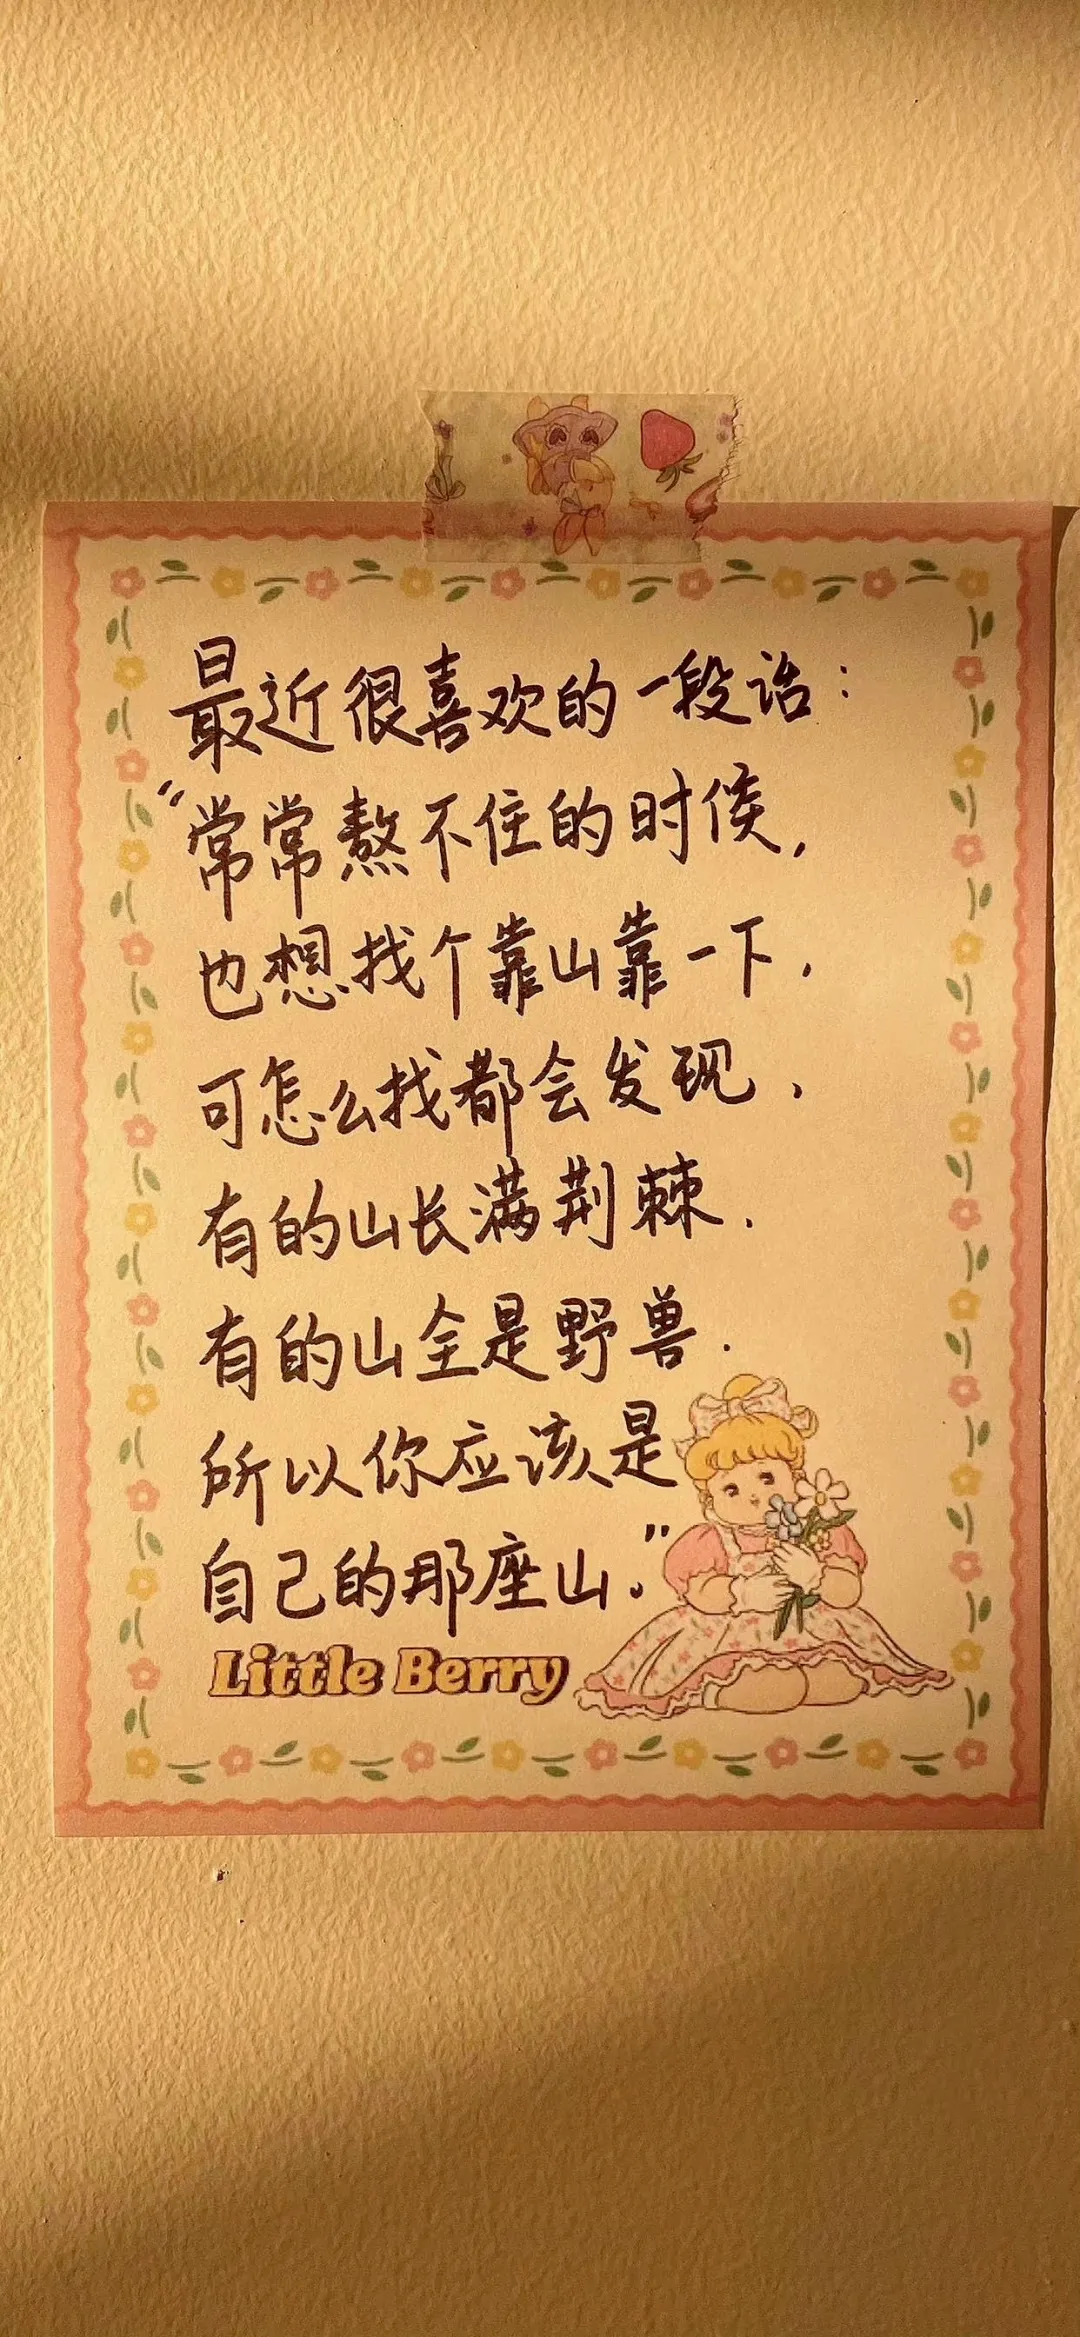 最近很喜欢的一段话：
“常常熬不住的时候，
也想找个靠山靠一下，
可怎么找都会发现，
有的山长满荆棘.
有的山全是野兽.
所以你应该是
自己的那座山。”
Little Berry